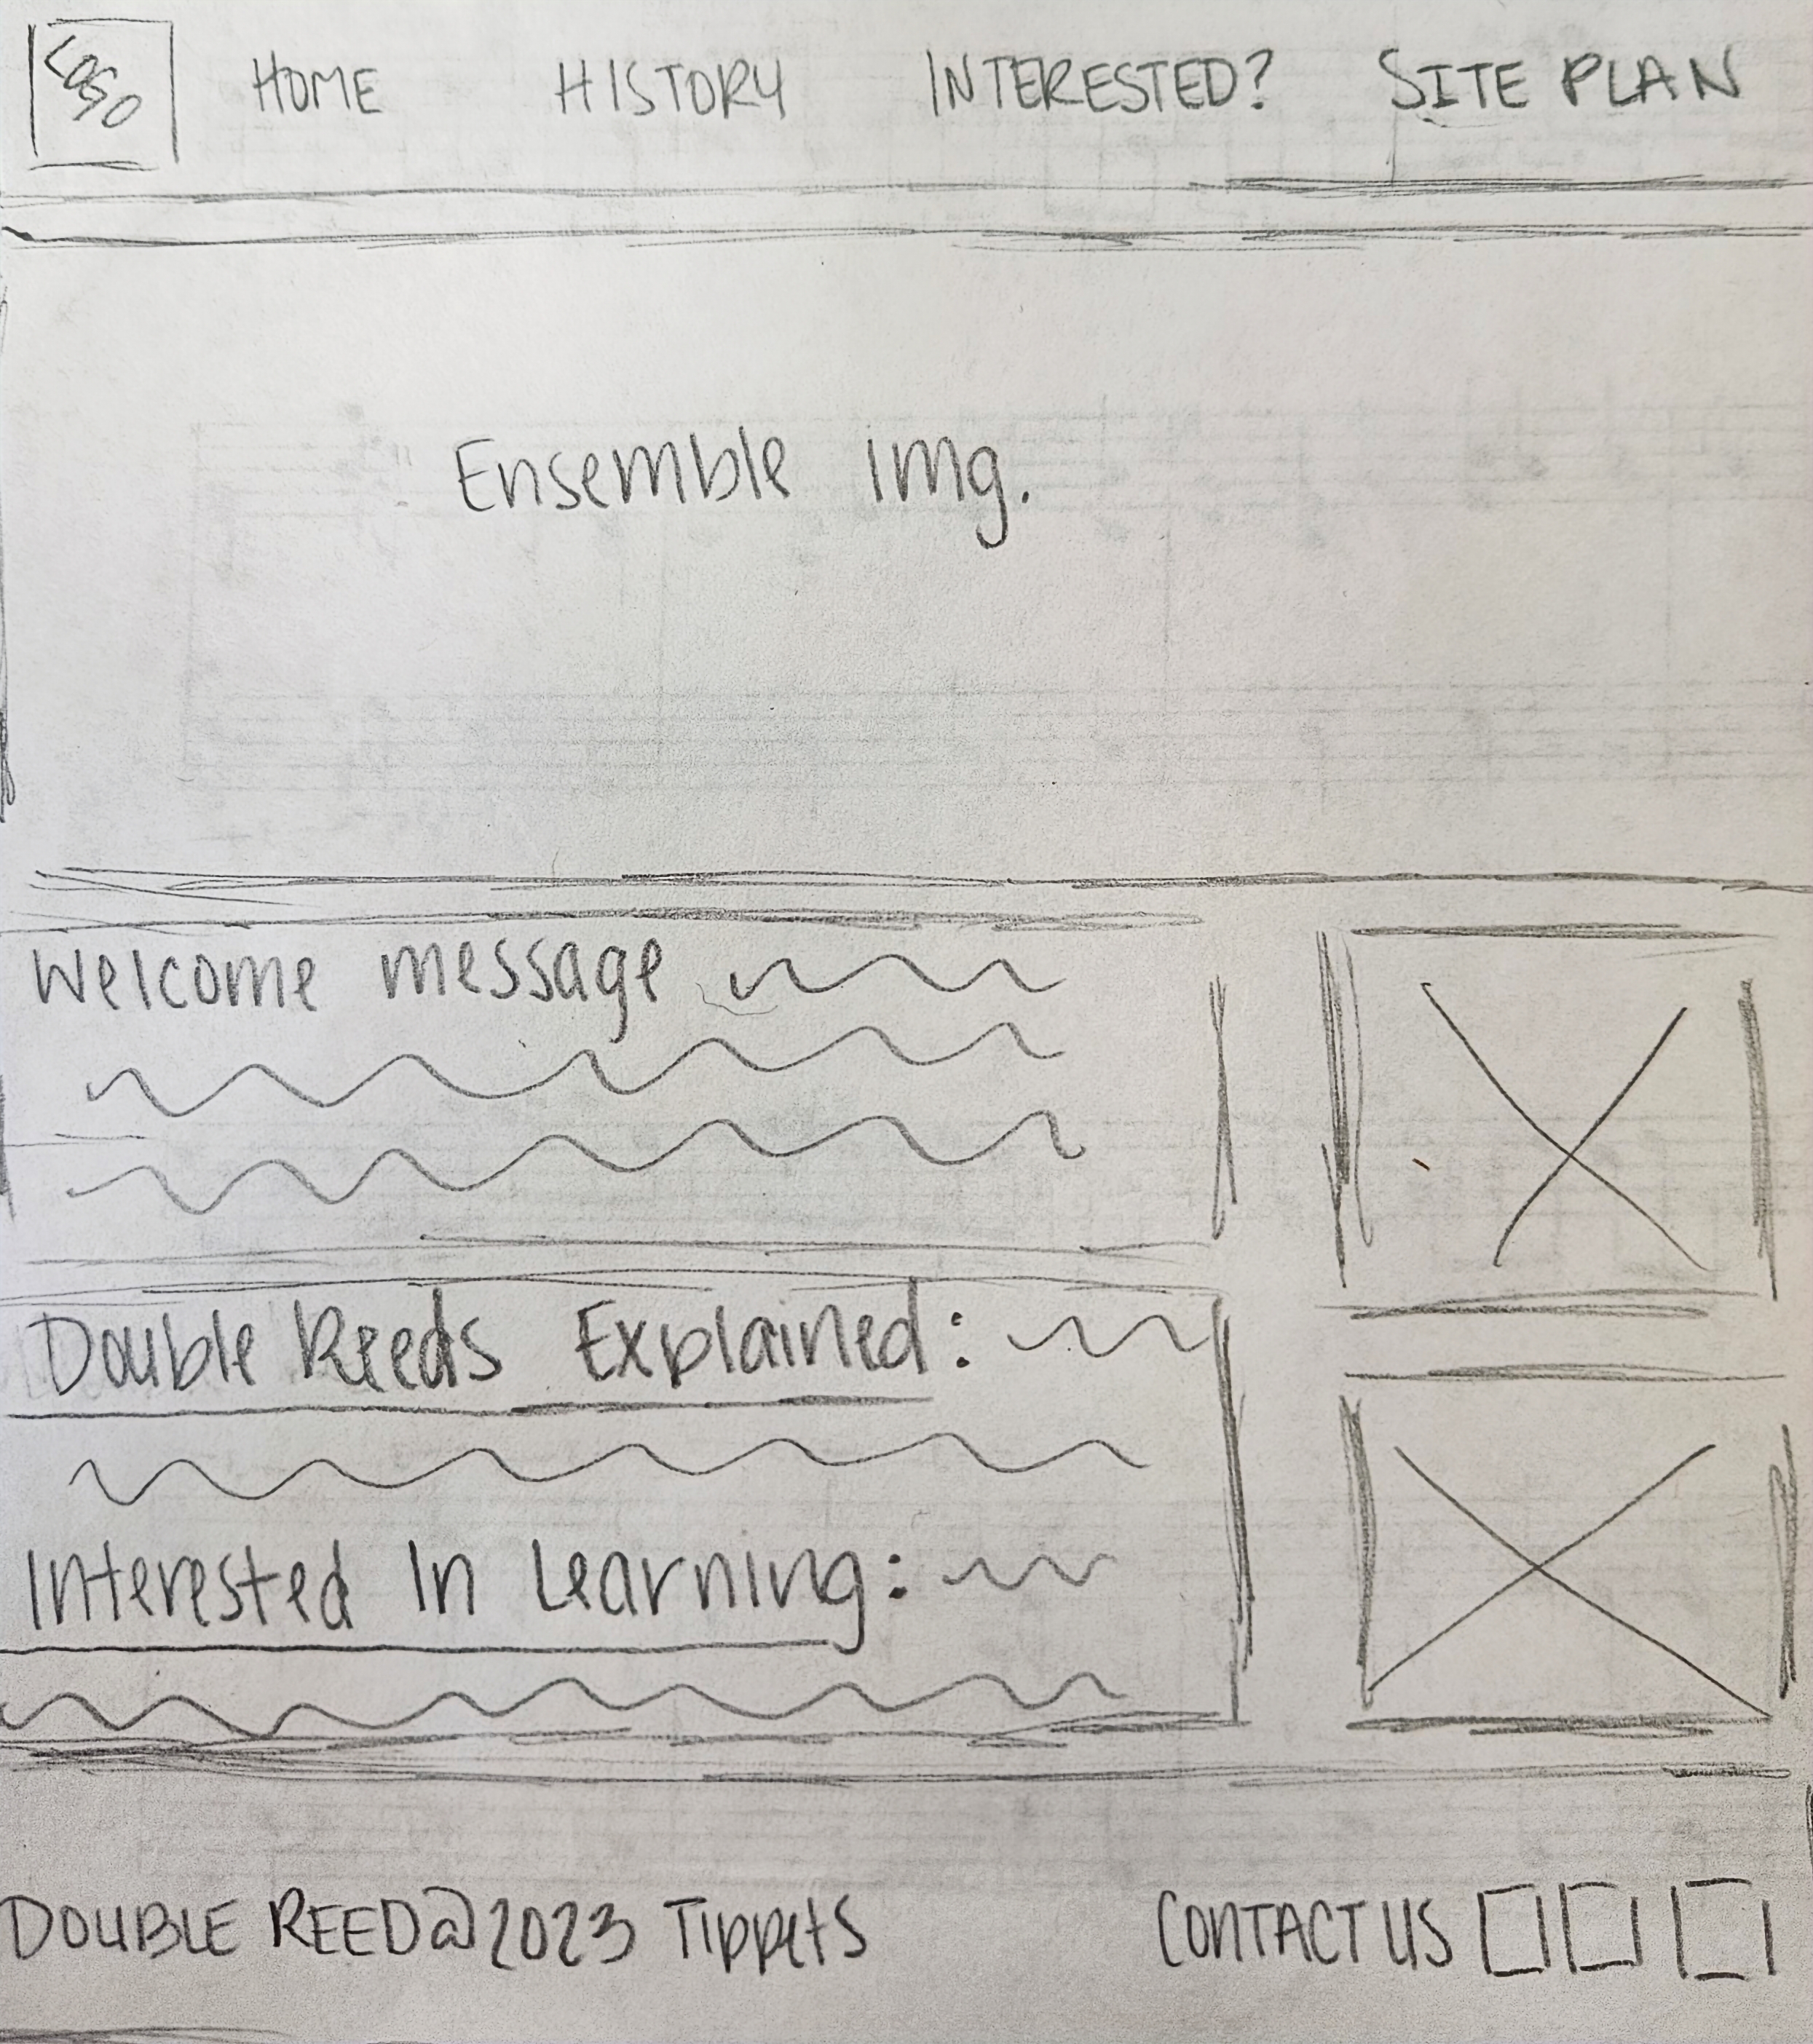 Logo
HOME HISTORY INTERESTED? SITE PLAN
Ensemble img.
Welcome message
Double Reeds Explained:
Interested In Learning:
DOUBLE REED@2023 Tippets CONTACT US